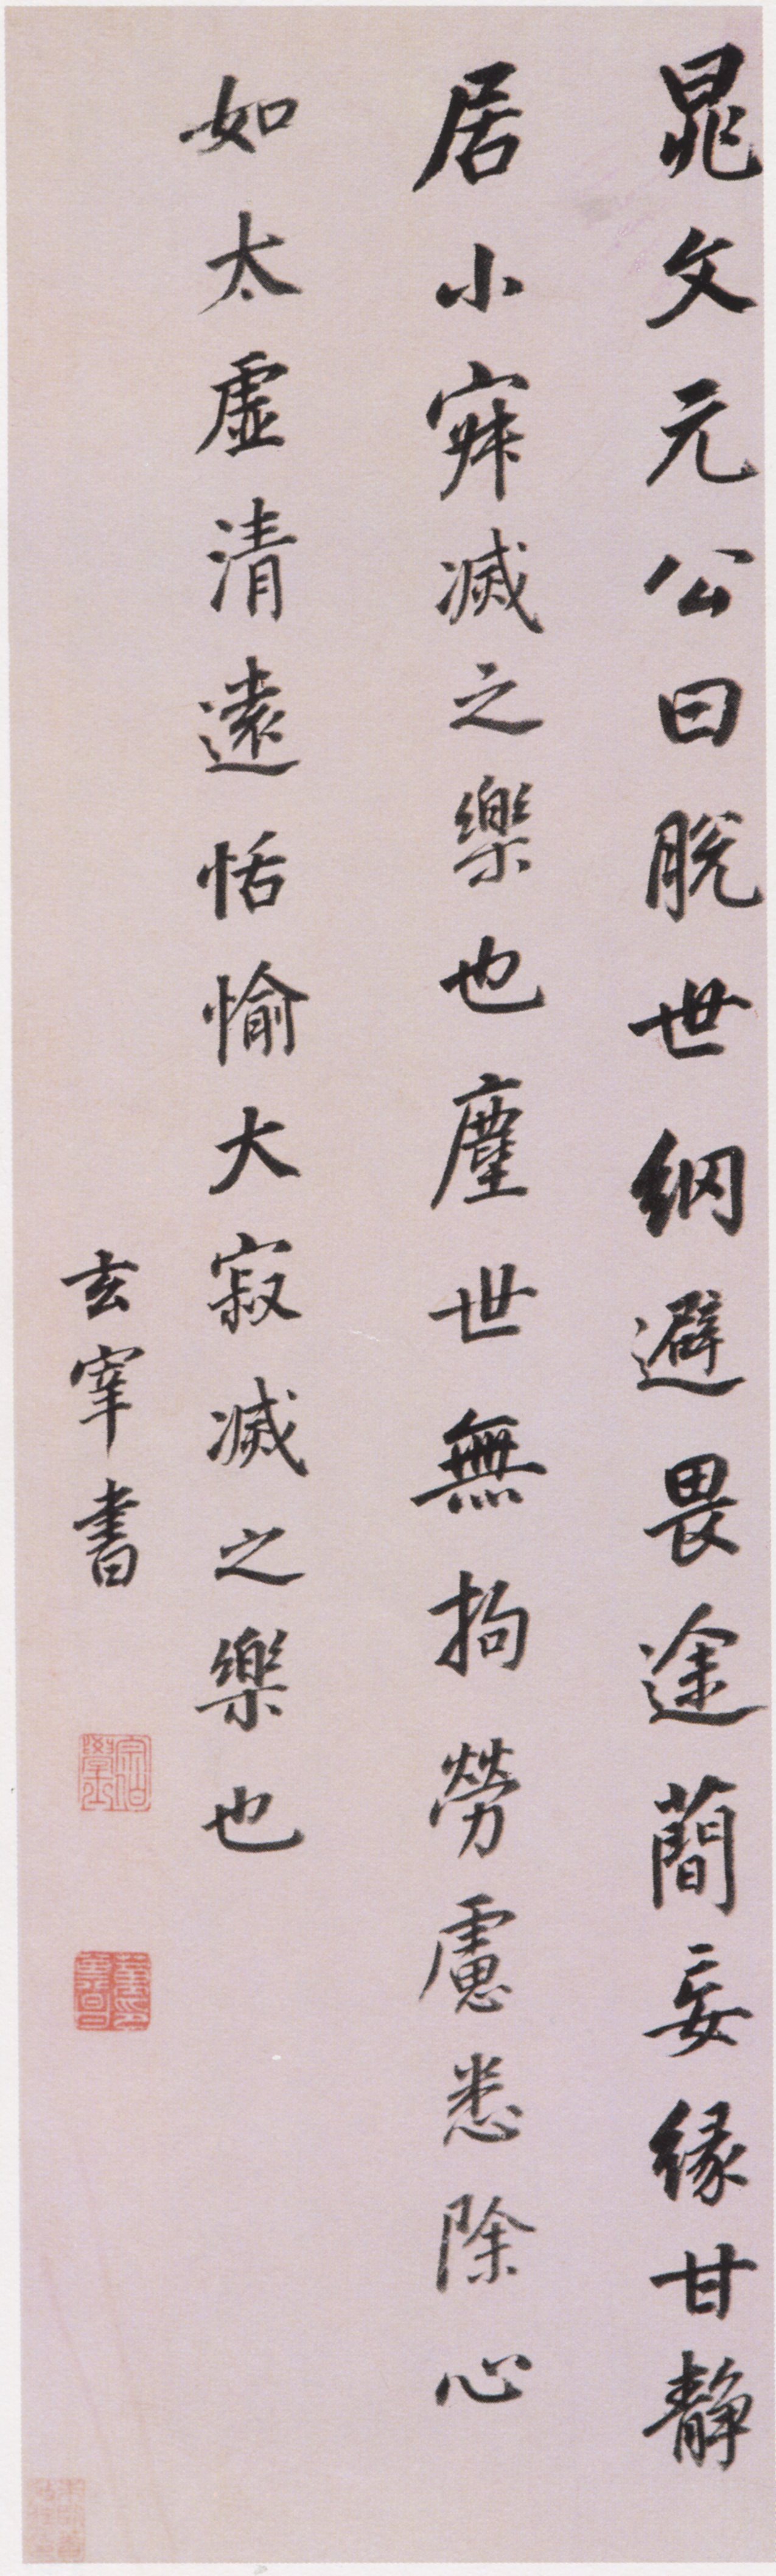 晁文元公曰脫世網避畏途簡妄緣甘靜
居小寂滅之樂也塵世無拘勞慮悉除心
如太虛清遠恬愉大寂滅之樂也
玄宰書
宗伯學士
董其昌印